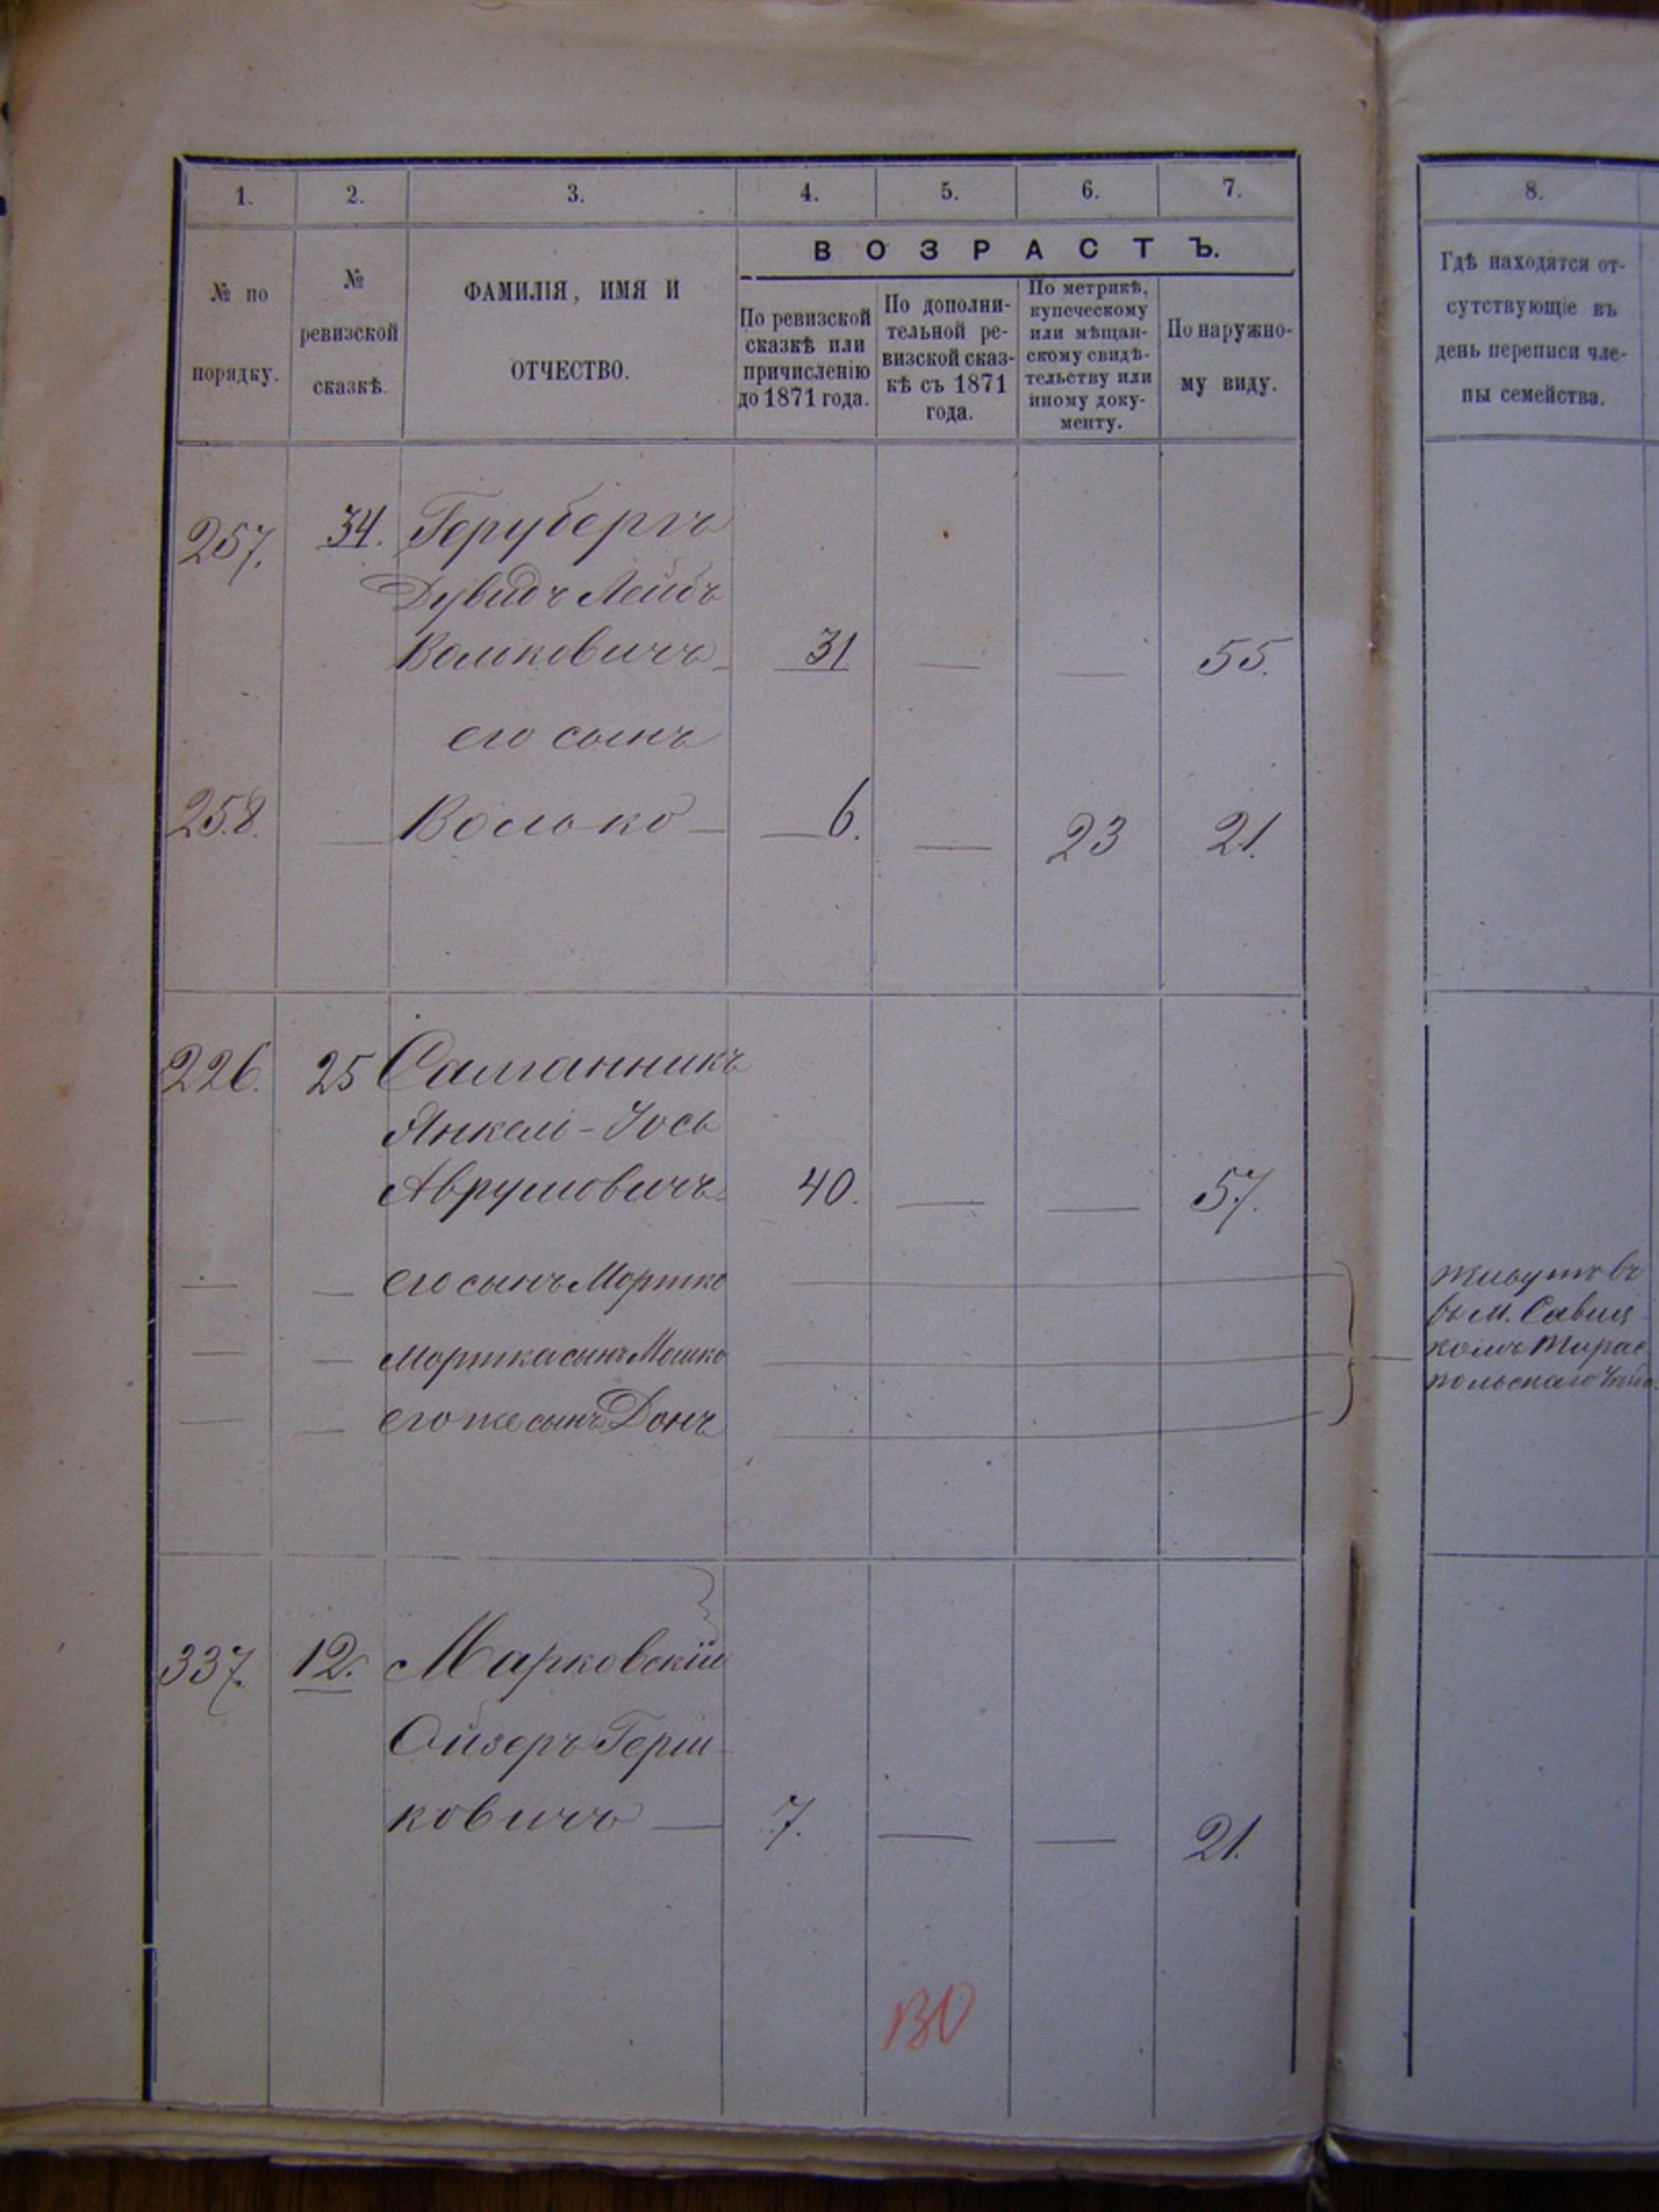 1. 2. 3. 4. 5. 6. 7. 8.
№ по порядку.
№ ревизской сказкѣ.
ФАМИЛІЯ, ИМЯ И
ОТЧЕСТВО.
ВОЗРАСТЪ.
По ревизской
сказкѣ или
причисленію
до 1871 года.
По дополни-
тельной ре-
визской сказ-
кѣ съ 1871
года.
По метрикѣ,
купеческому
или мѣщан-
скому свидѣ-
тельству или
иному доку-
менту.
По наружно-
му виду.
Гдѣ находятся от-
сутствующіе въ
день переписи чле-
ны семейства.
257. 34. Герубергъ
Дувидъ Лейбъ
Волковичъ 31 — — 55.
его сынъ
258. — Волько — 6. — 23 21.
226. 25 Салганникъ
Янкель-Іось
Аврумовичъ 40. — — 57.
— — его сынъ Мортко
— — Мортка сынъ Мошко
— — его же сынъ Донъ
Живутъ въ
въ м. Савиц
комъ Тирас
польскаго
337. 12. Марковскій
Ойзеръ Герш-
ковичъ — 7. — — 21.
130